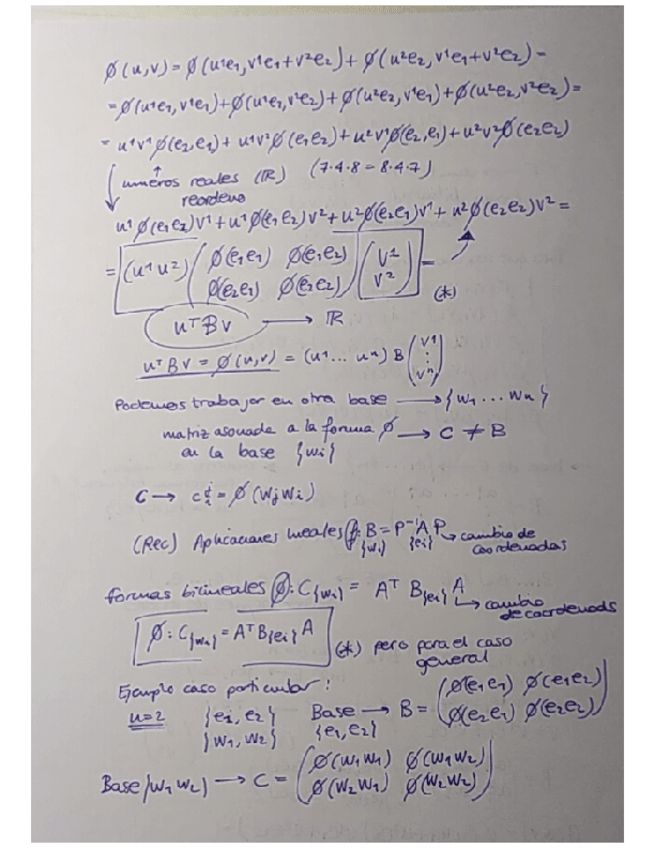 ø(u,v) = ø(u¹e₁, v¹e₁+v²e₂) + ø(u²e₂, v¹e₁+v²e₂) =
= ø(u¹e₁, v¹e₁) + ø(u¹e₁, v²e₂) + ø(u²e₂, v¹e₁) + ø(u²e₂, v²e₂) =
= u¹v¹ø(e₂,e₁) + u¹v²ø(e₁e₂) + u²v¹ø(e₂,e₁) + u²v²ø(e₂e₂)
números reales (ℝ) (7·4·8 = 8·4·7)
reordeno
u¹ø(e₁e₂)v¹ + u¹ø(e₁e₂)v² + u²ø(e₂e₁)v¹ + u²ø(e₂e₂)v² =
= (u¹ u²) ( ø(e₁e₁) ø(e₁e₂) ) ( v¹ ) =
( ø(e₂e₁) ø(e₂e₂) ) ( v² ) (*)
uᵀBv → ℝ
uᵀBv = ø(u,v) = (u¹ ... uⁿ) B ( v¹ ⋮ vⁿ )
Podemos trabajar en otra base → {w₁ ... wn}
matriz asociada a la forma ø → C ≠ B
en la base {wi}
C → = ø(wj wi)
(Rec) Aplicaciones lineales f: B = P⁻¹ A P → cambio de
{wi} {ei} coordenadas
formas bilineales ø: C{wi} = Aᵀ B{ei} A
→ cambio
de coordenads
ø: C{wi} = Aᵀ B{ei} A (*) pero para el caso
general
Ejemplo caso particular:
n=2 {e₁, e₂} Base → B = ( ø(e₁e₁) ø(e₁e₂) )
{w₁, w₂} {e₁, e₂} ( ø(e₂e₁) ø(e₂e₂) )
Base {w₁ w₂} → C = ( ø(w₁w₁) ø(w₁w₂) )
( ø(w₂w₁) ø(w₂w₂) )